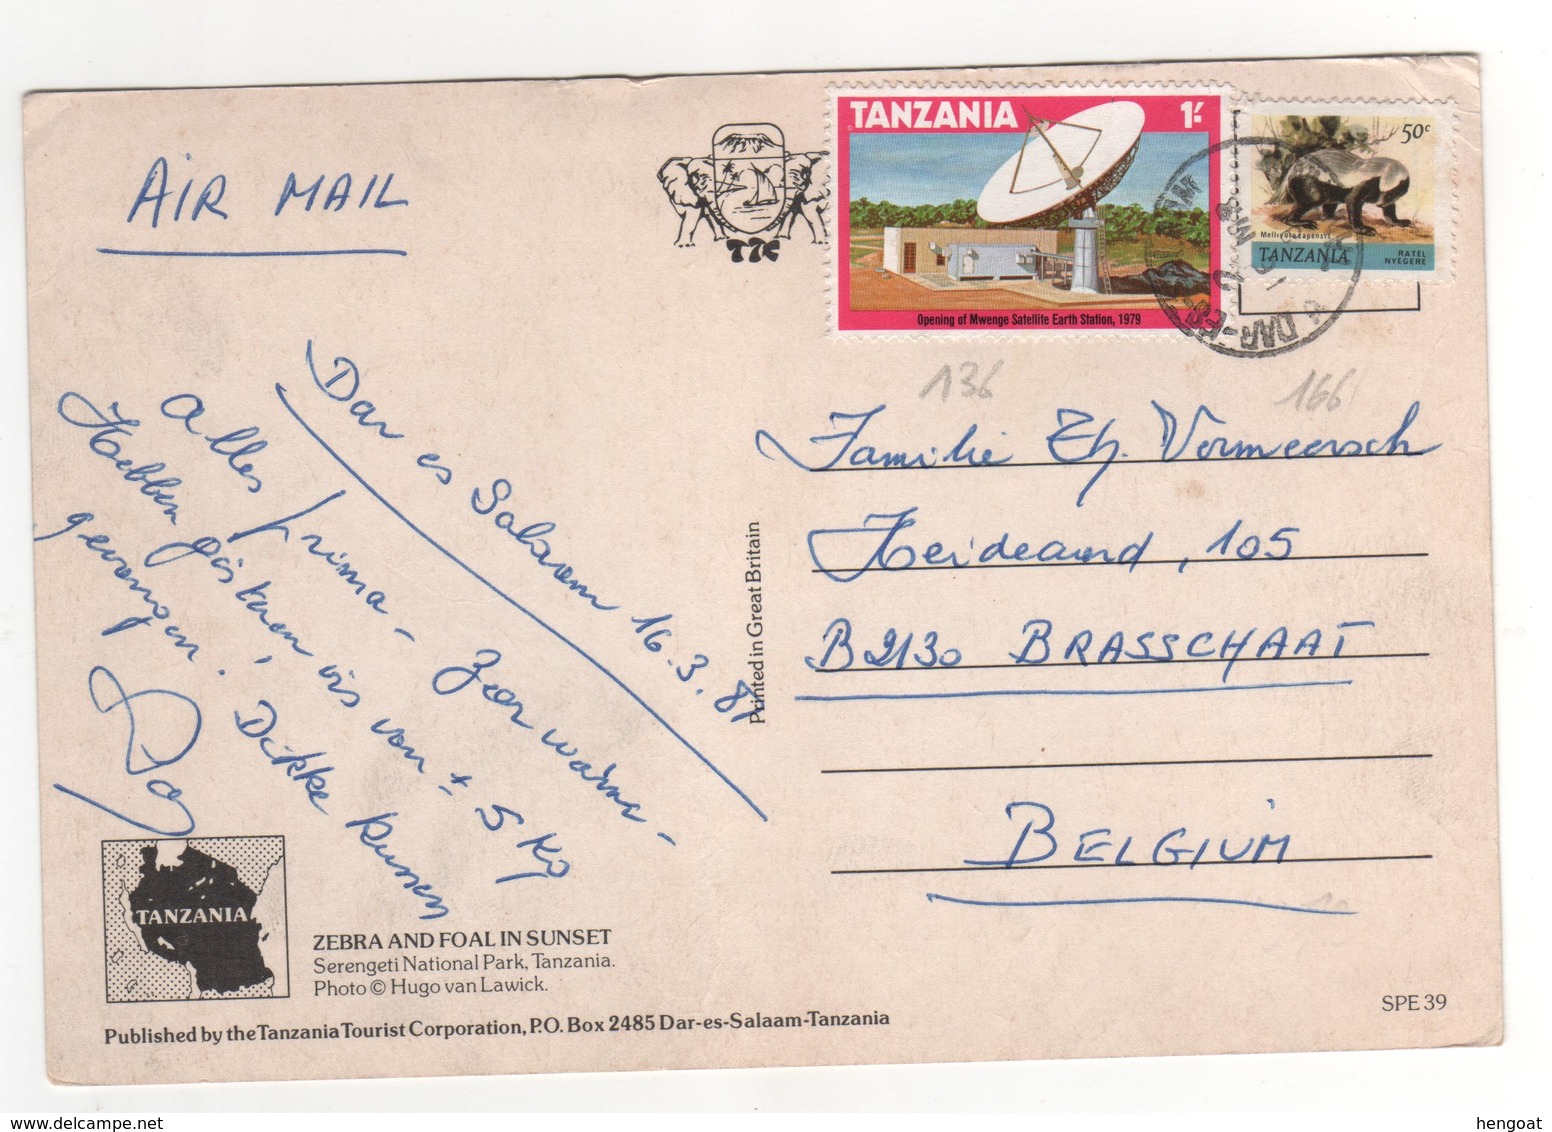 AIR MAIL
TTC
TANZANIA 1/-
Opening of Mwenge Satellite Earth Station, 1979
50c
Mellivora capensis
TANZANIA
RATEL
NYEGERE
DAR-ES
136
166
Dar es Salaam 16.3.81
Alles prima - Zeer warm -
Hebben gisteren, vis van ± 5 Kg
gevangen. Dikke kussen
Familie Th. Vermeersch
Heideand, 105
B 2130 BRASSCHAAT
BELGIUM
Printed in Great Britain
TANZANIA
ZEBRA AND FOAL IN SUNSET
Serengeti National Park, Tanzania.
Photo © Hugo van Lawick.
Published by the Tanzania Tourist Corporation, P.O. Box 2485 Dar-es-Salaam-Tanzania
SPE 39
delcampe.net
hengoat